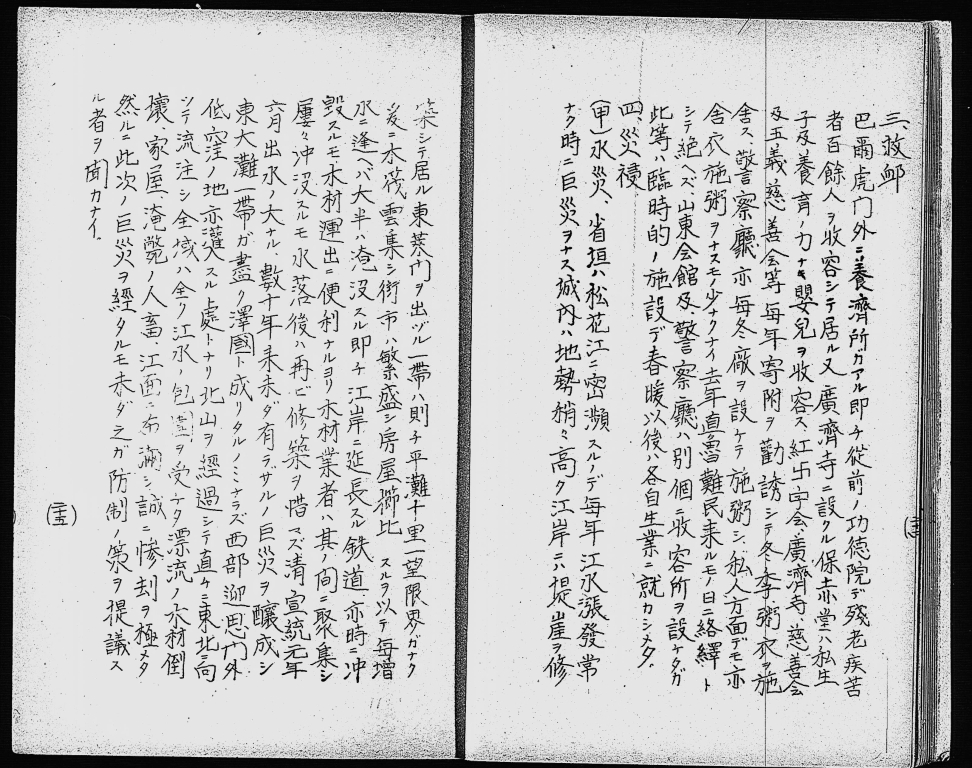 三、救邺
巴爾虎门外ニ養濟所ガアル即チ從前ノ功徳院デ殘老疾苦
者百餘人ヲ收容シテ居ル又廣濟寺ニ設クル保赤堂ハ私生
子及養育ノ力ナキ嬰兒ヲ收容ス紅卍字会、廣濟寺、慈善会
及五義慈善会等每年寄附ヲ勸誘シテ冬季粥衣ヲ施
舍ス、警察廳亦每冬廠ヲ設ケテ施粥シ、私人方面デモ亦
舍衣施粥ヲナスモノ少ナクナイ去年直魯難民来ルモノ日ニ絡繹ト
シテ絶ヘズ山東会館及、警察廳ハ別個ニ收容所ヲ設ケタガ
此等ハ臨時的ノ施設デ春暖以後ハ各自生業ニ就カシメタ。
四、災祲
(甲)水災、省垣ハ松花江ニ密瀕スルノデ每年江水漲發常
ナク時ニ巨災ヲナス城内ハ地勢稍々高ク江岸ニハ堤崖ヲ修
築シテ居ル東萊门ヲ出ヅル一帯ハ則チ平灘十里一望限界ガナク
ニ木筏雲集シ街市ハ繁盛シ房屋櫛比スルヲ以テ每増
水ニ逢ヘバ大半ハ淹没スル即チ江岸ニ延長スル鉄道亦時ニ冲
毀スルモ、木材運出ニ便利ナルヨリ木材業者ハ其ノ間ニ聚集シ
屢々冲没スルモ水落後ハ再ビ修築ヲ惜マズ清宣統元年
六月出水ノ大ナル數十年来未ダ有ラザルノ巨災ヲ釀成シ
東大灘一帯ガ盡ク澤國ト成リタルノミナラズ西部迎恩门外
低窪ノ地亦灌スル處トナリ北山ヲ經過シテ直チニ東北ニ向
ツテ流注シ全城ハ全ク江水ノ包ヲ受ケタ漂流ノ木材倒
壞、家屋淹斃ノ人畜、江面ニ布満シ誠ニ惨刧ヲ極メタ
然ルニ此次ノ巨災ヲ經タルモ未ダ之ガ防制ノ策ヲ提議ス
ル者ヲ聞カナイ。